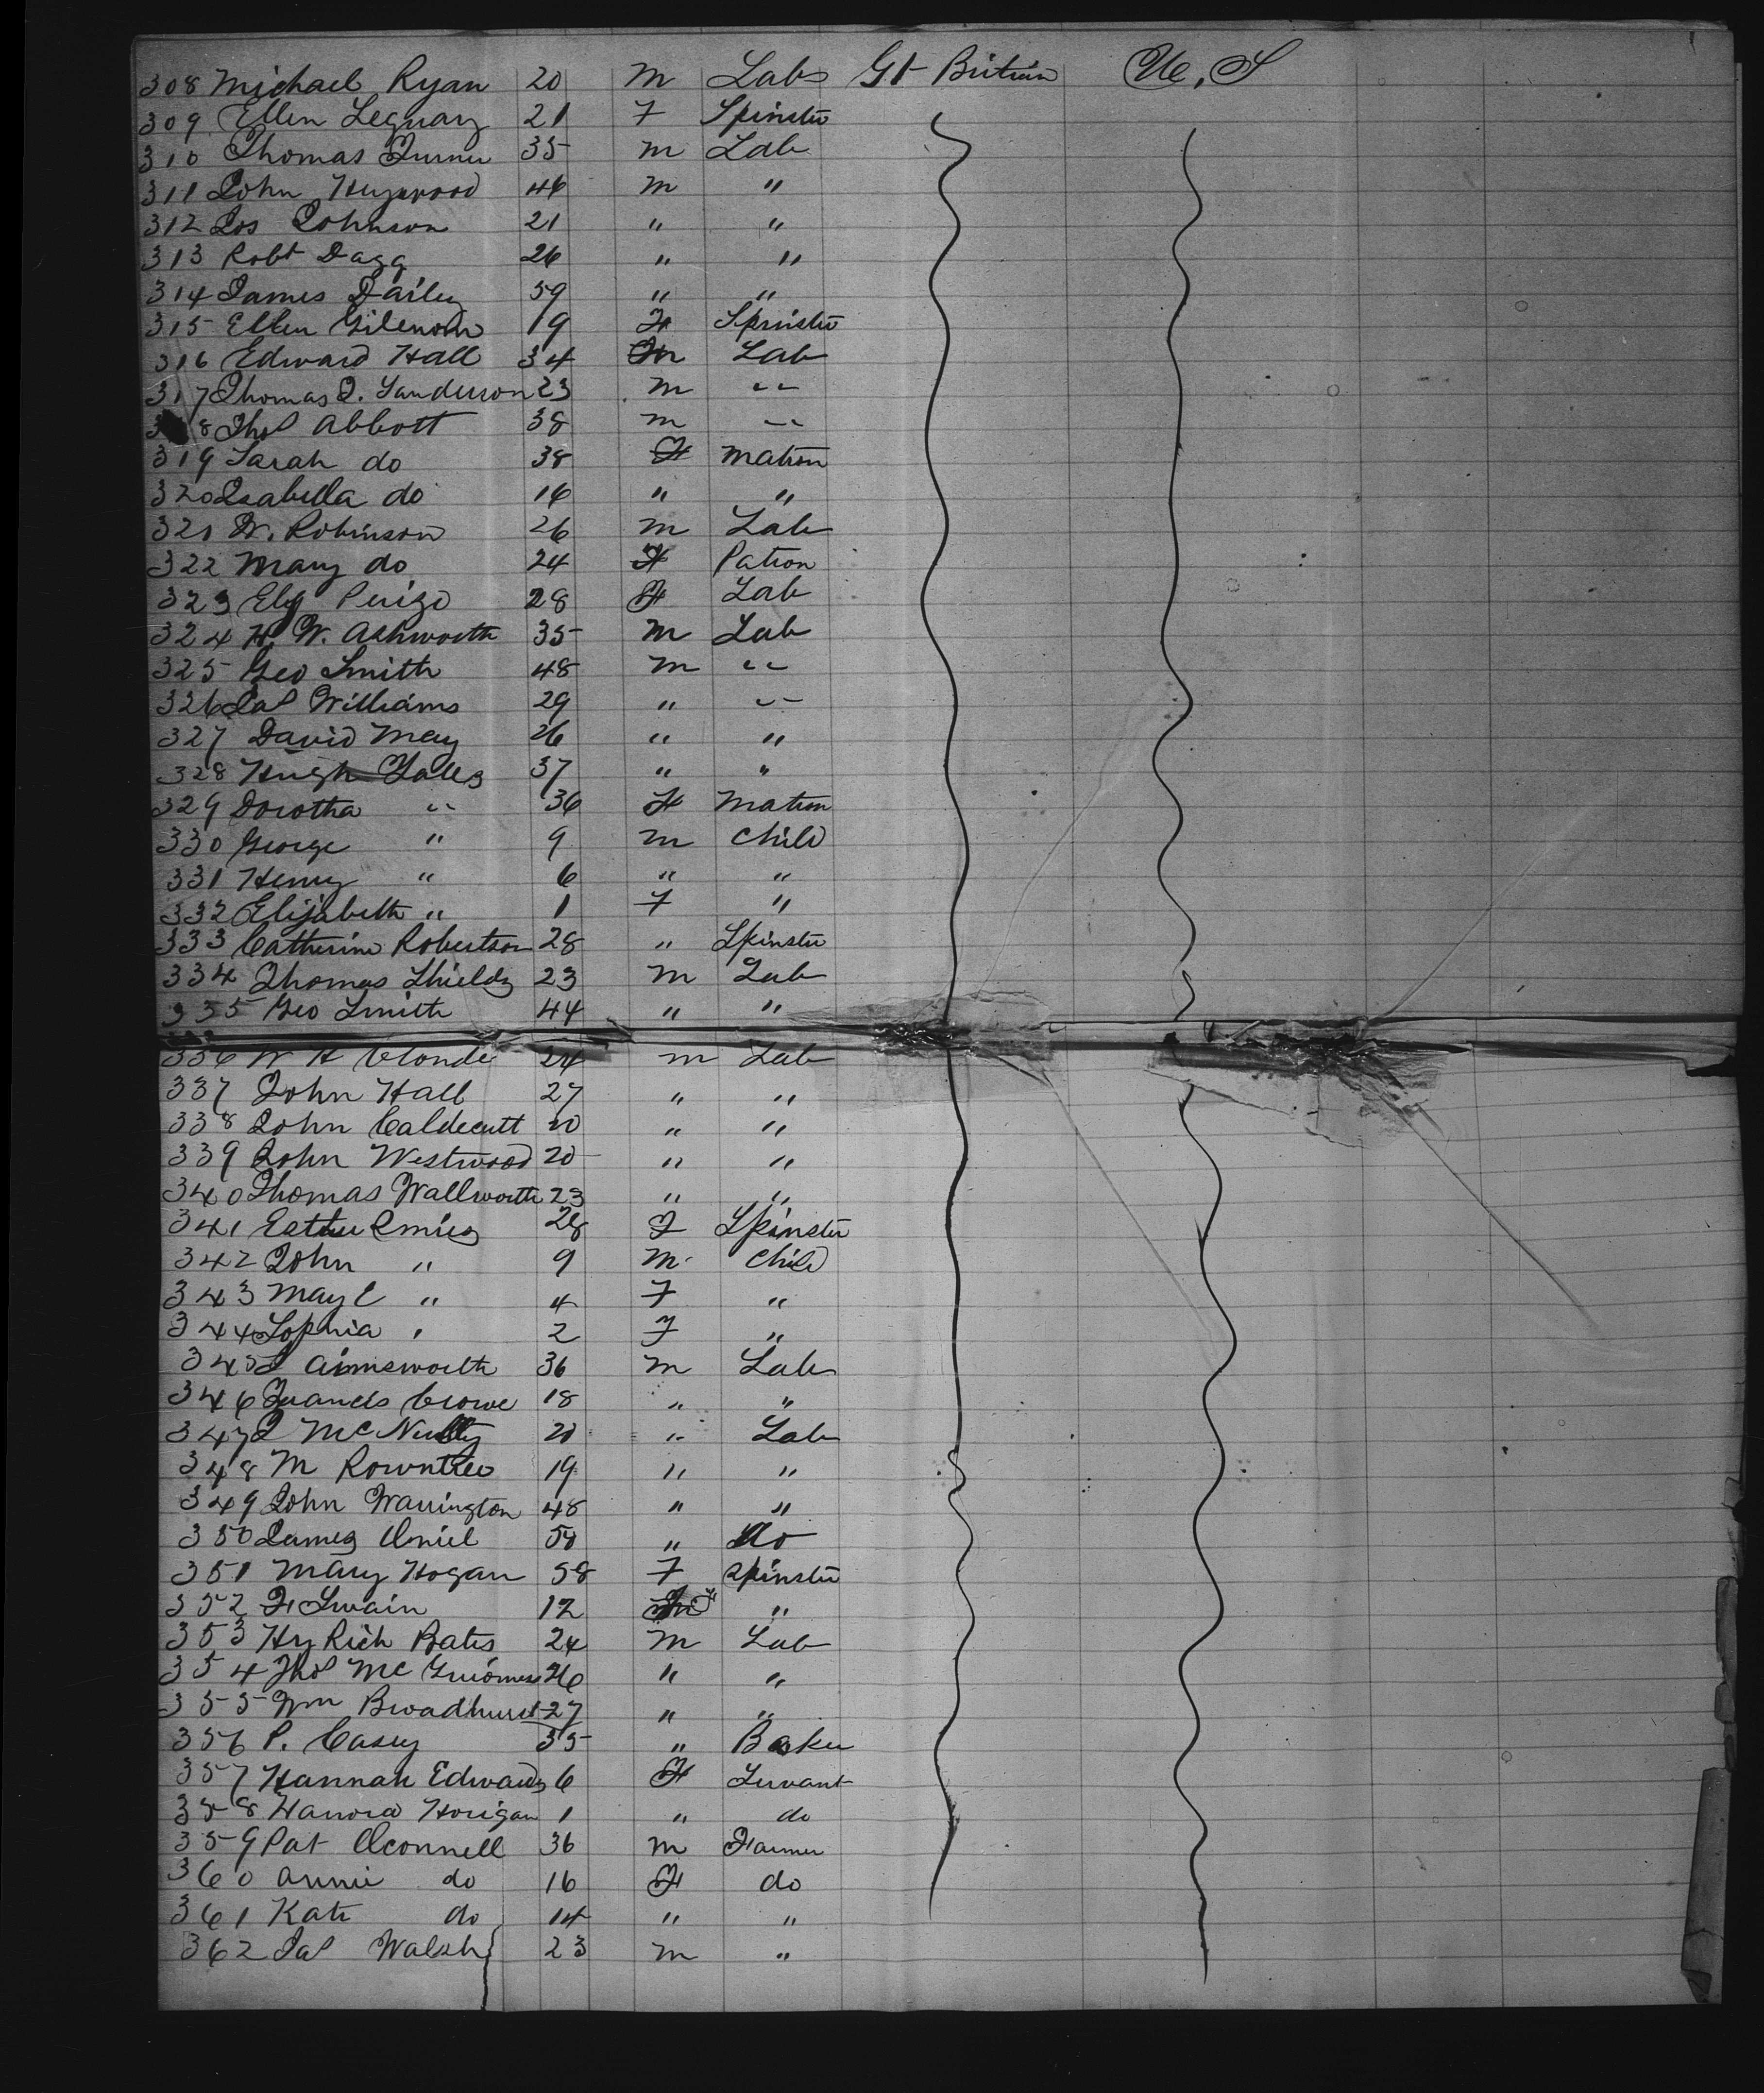 308 Michael Ryan 20 m Lab Gt Britian U.S
309 Ellen 21 F Spinster
310 Thomas Turner 35 m Lab
311 John Heywood 46 m "
312 Jos Johnson 21 " "
313 Robt Dagg 26 " "
314 James Dailey 59 " "
315 Ellen 19 F Spinster
316 Edward Hall 34 m Lab
317 Thomas J. Sanderson 23 m "
318 Thos Abbott 38 m "
319 Sarah do 38 F matron
320 Isabella do 16 " "
321 W. Robinson 26 m Lab
322 Mary do 24 F Patron
323 28 F Lab
324 H. W. Ashworth 35 m Lab
325 Geo Smith 48 m "
326 Jas Williams 29 " "
327 David May 26 " "
328 Hugh Yates 37 " "
329 Dorotha " 36 F matron
330 George " 9 m Child
331 Henry " 6 " "
332 Elizabeth " 1 F "
333 Catherine Robertson 28 " Spinster
334 Thomas Shields 23 m Lab
335 Geo Smith 44 " "
336 W H 24 m Lab
337 John Hall 27 " "
338 John Caldecutt 20 " "
339 John Westwood 20 " "
340 Thomas Wallworth 23 " "
341 Esther 28 F Spinster
342 John " 9 m Child
343 May E " 4 F "
344 Sophia " 2 F "
345 J Aimsworth 36 m Lab
346 Francis Crowe 18 " "
347 J McNulty 20 " Lab
348 M Rowntree 19 " "
349 John Warrington 48 " "
350 James Oniel 50 " do
351 Mary Hogan 58 F Spinster
352 F Swain 12 F "
353 Hy Rich Bates 24 m Lab
354 Thos Mc 26 " "
355 Wm Broadhurst 27 " "
356 P. Casey 35 " Baker
357 Hannah Edwards 6 F Servant
358 Hanora Horigan 1 " do
359 Pat Oconnell 36 m Farmer
360 Annie do 16 F do
361 Kate do 14 " "
362 Jas Walsh 23 m "